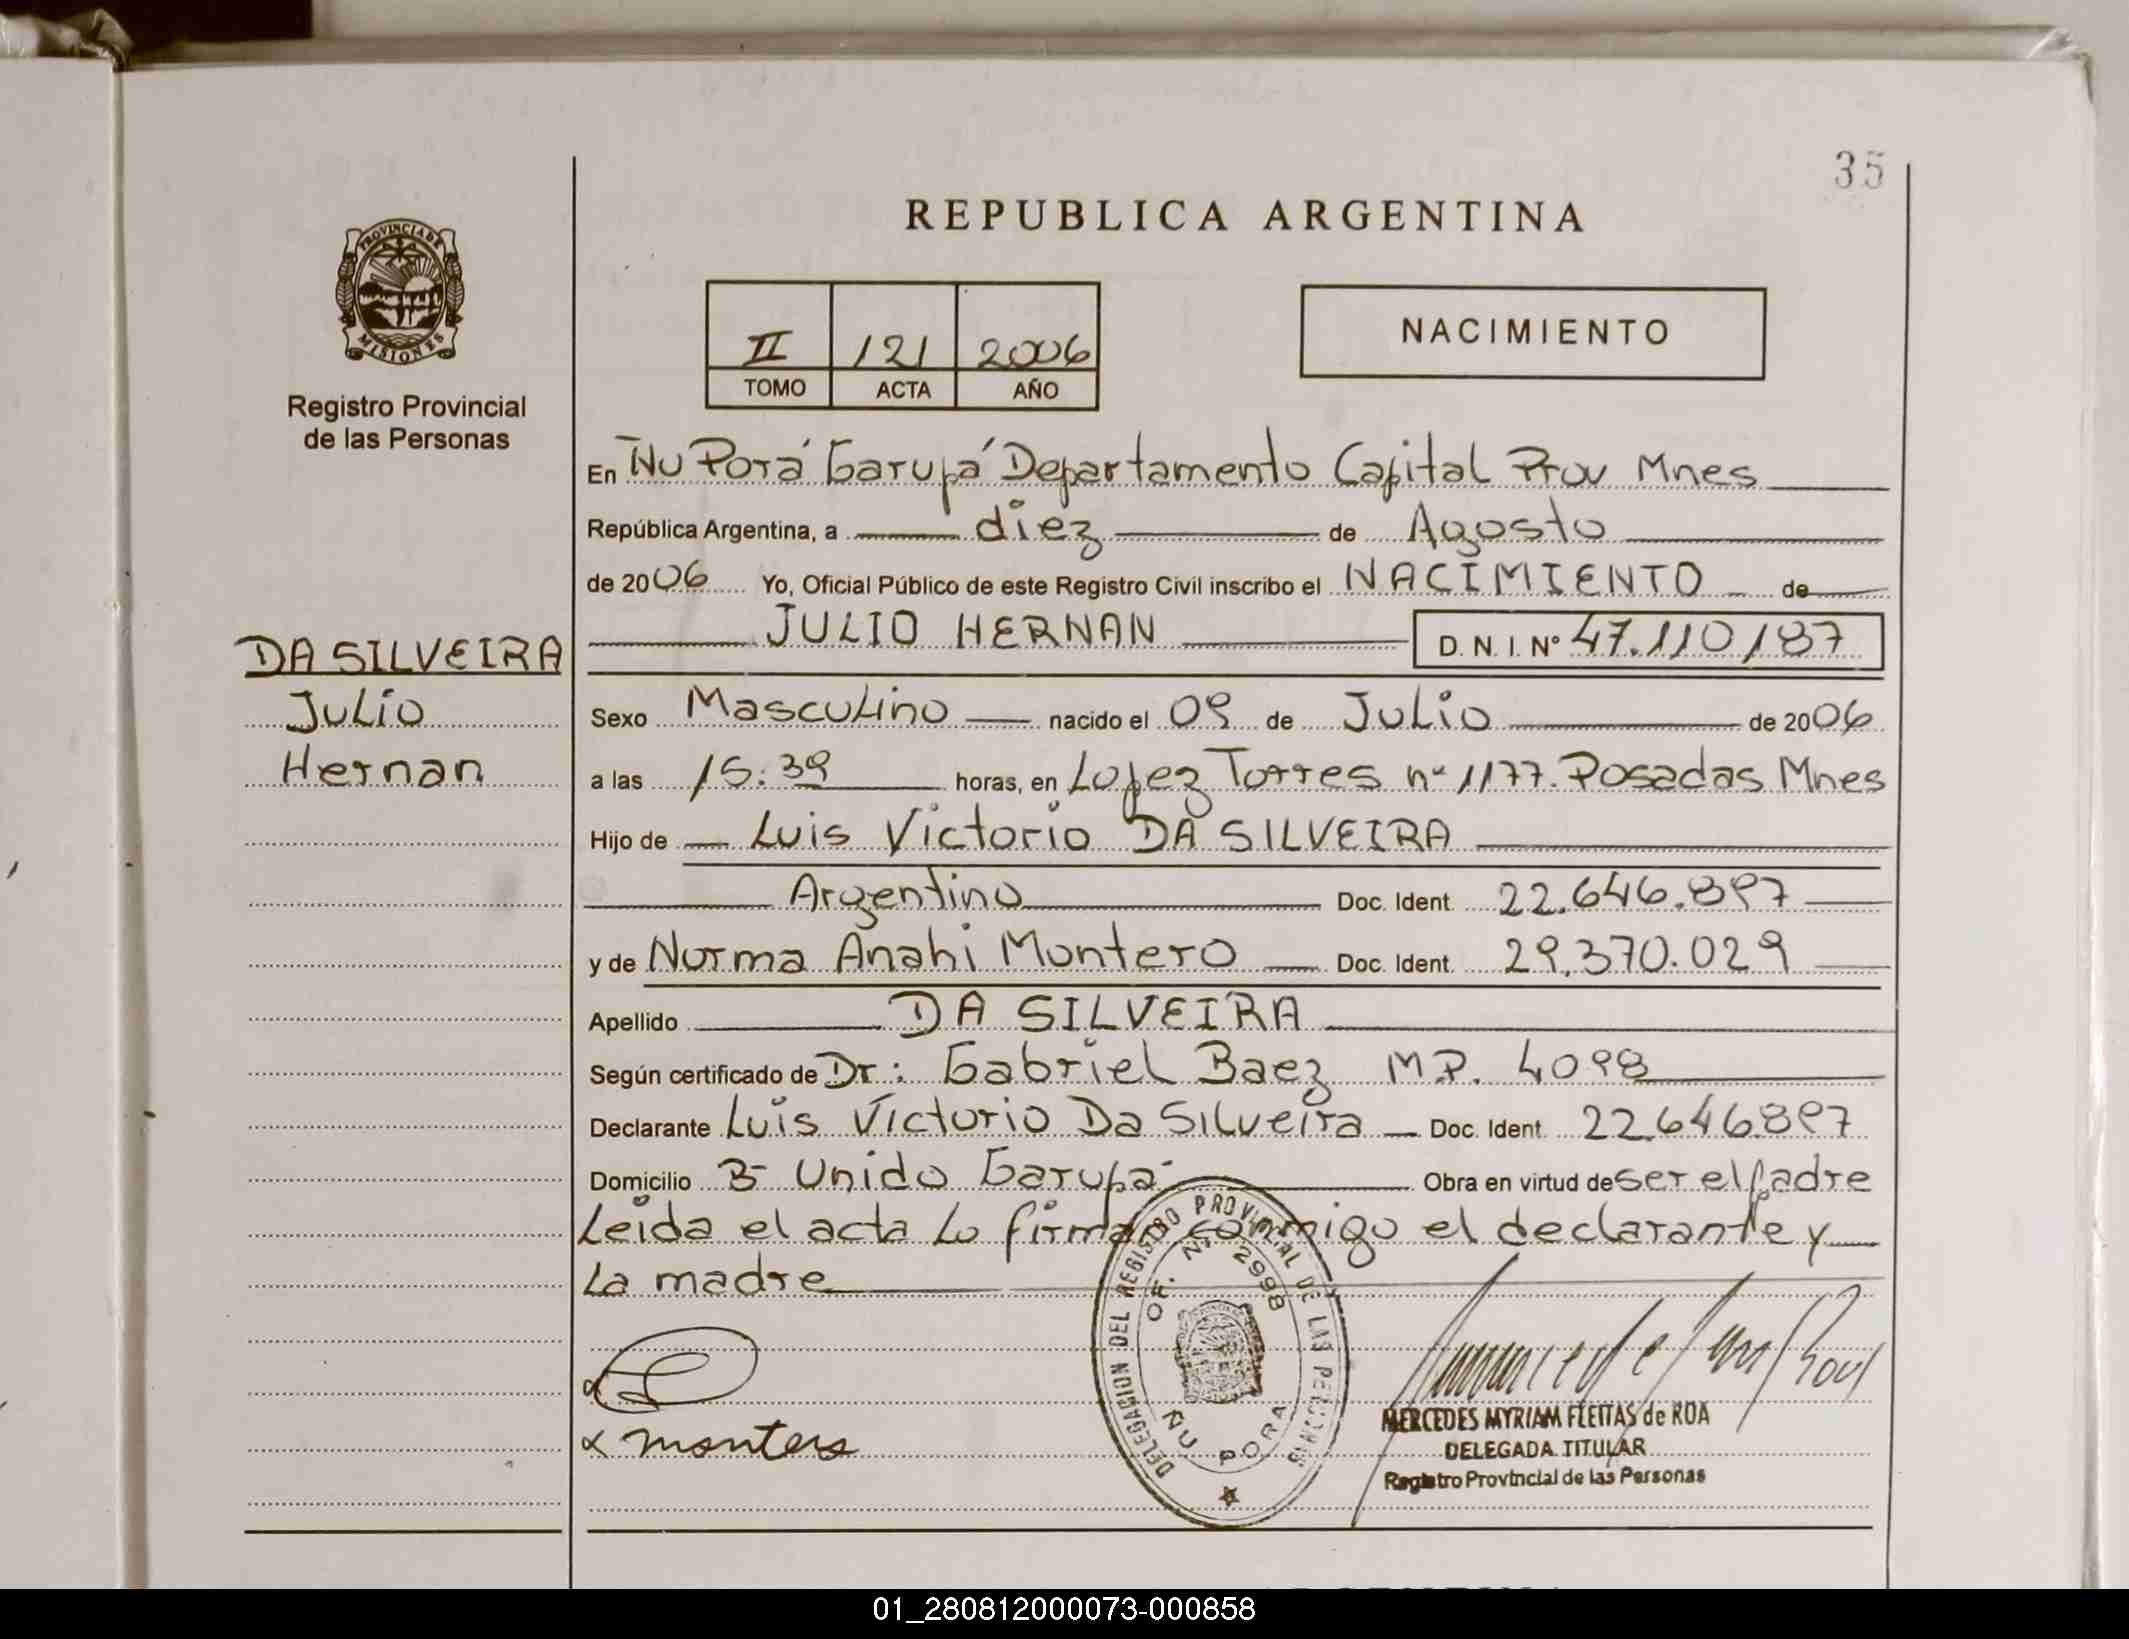 35
REPUBLICA ARGENTINA
PROVINCIA DE
MISIONES
Registro Provincial
de las Personas
II 121 2006
TOMO ACTA AÑO
NACIMIENTO
En Ñu Porá Garupá Departamento Capital Prov Mnes
República Argentina, a diez de Agosto
de 2006 Yo, Oficial Público de este Registro Civil inscribo el NACIMIENTO de
JULIO HERNAN D. N. I. Nº 47.110187
DA SILVEIRA
Julio
Hernan
Sexo Masculino nacido el 09 de Julio de 2006
a las 15:39 horas, en Lopez Torres nº 1177. Posadas Mnes
Hijo de Luis Victorio DA SILVEIRA
Argentino Doc. Ident. 22.646.897
y de Norma Anahi Montero Doc. Ident. 29.370.029
Apellido DA SILVEIRA
Según certificado de Dr: Gabriel Baez MP. 4098
Declarante Luis Victorio Da Silveira Doc. Ident. 22.646.897
Domicilio Bº Unido Garupá Obra en virtud de ser el padre
Leida el acta Lo firman conmigo el declarante y
La madre
DELEGACION DEL REGISTRO PROVINCIAL DE LAS PERSONAS
OF. Nº 2998
ÑU PORA
montero
MERCEDES MYRIAM FLEITAS de ROA
DELEGADA TITULAR
Registro Provincial de las Personas
01_280812000073-000858